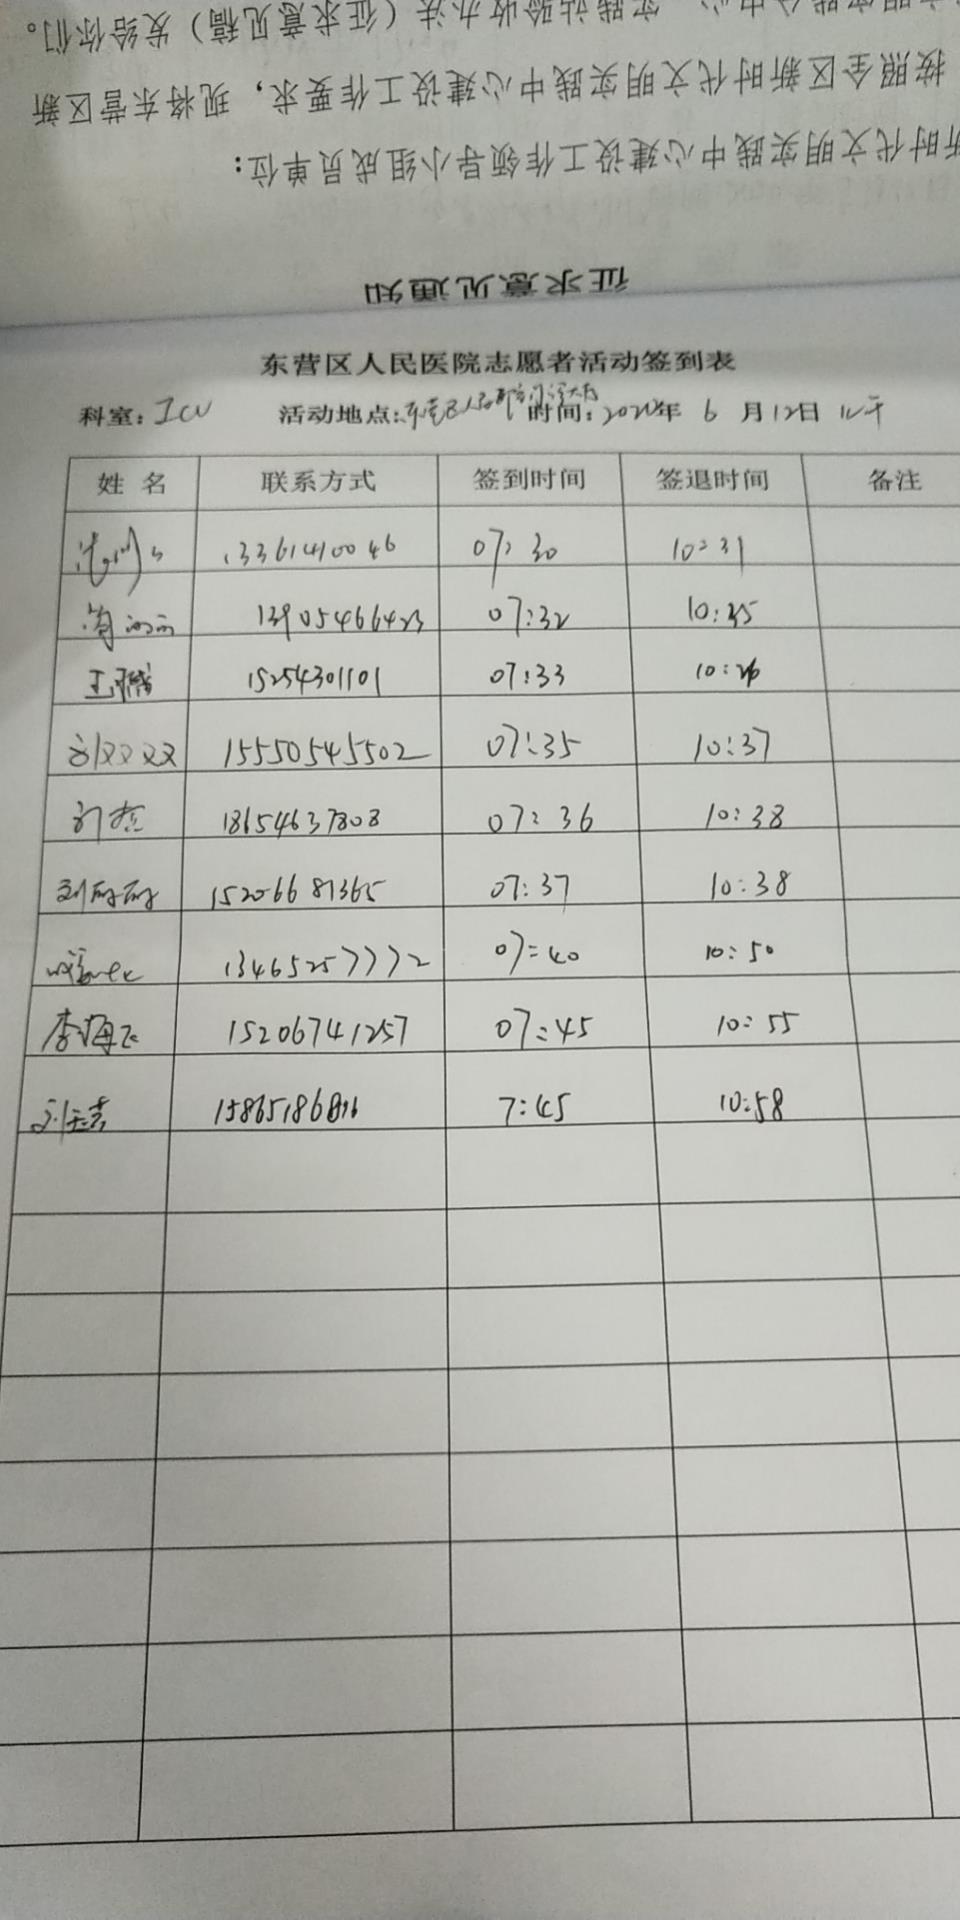 新时代文明实践中心建设工作领导小组成员单位:
按照全区新时代文明实践中心建设工作要求,现将东营区新
实践站验收办法(征求意见稿)发给你们。
征求意见通知
东营区人民医院志愿者活动签到表
科室: ICU 活动地点: 时间: 年 6 月 12日
姓名 联系方式 签到时间 签退时间 备注
13361410046 07:30 10:31
13905466423 07:32 10:35
15254301101 07:33 10:36
刘双双 15550545502 07:35 10:37
18654637808 07:36 10:38
15206681365 07:37 10:38
13465257772 07:40 10:50
李海飞 15206741257 07:45 10:55
7:45 10:58